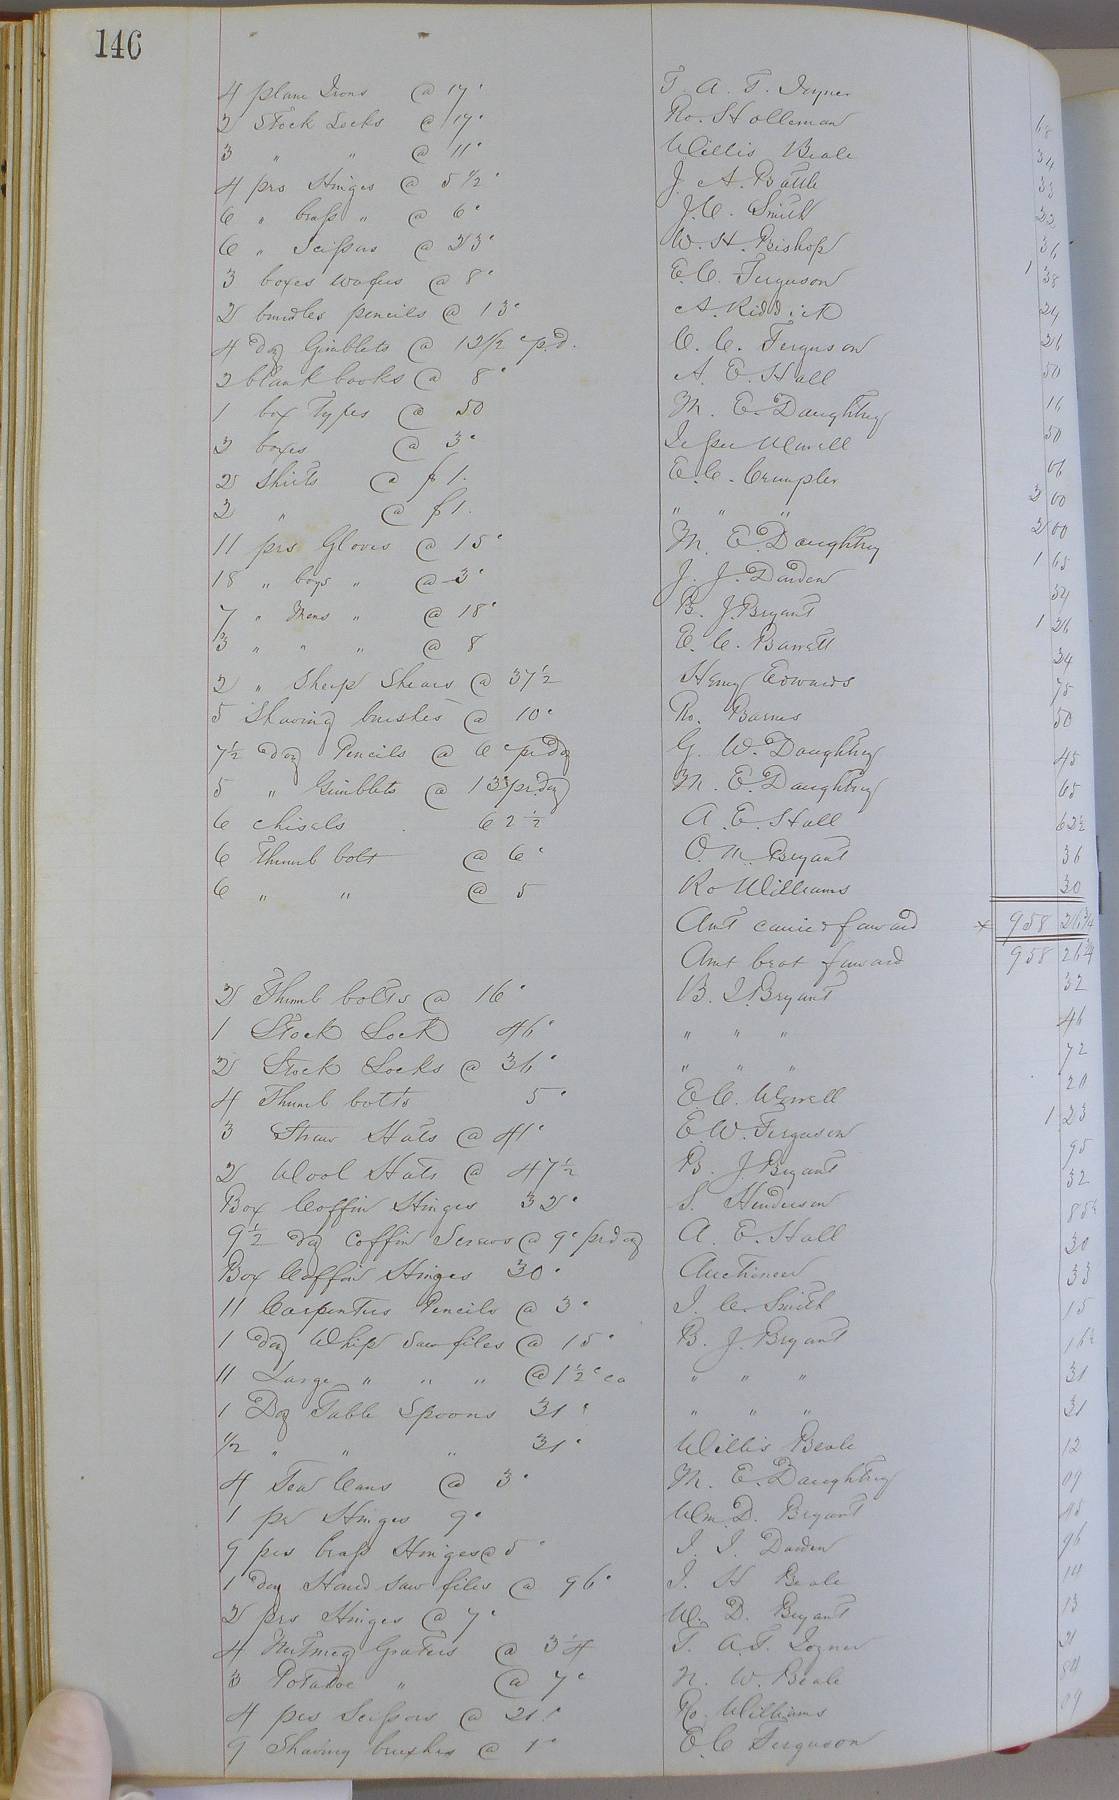 146
4 plane Irons @ 17c T. A. T. Joyner 68
2 Stock Locks @ 17c Ro. Holleman 34
3 " " @ 11c Willis Beale 33
4 prs Hinges @ 5 1/2c J. A. Battle 22
6 " brass " @ 6c J. C. Smith 36
6 " Scissors @ 23c W. H. Bishop 1 38
3 boxes wafers @ 8c E. C. Ferguson 24
2 bundles pencils @ 13c A. Riddick 26
4 Doz Gimblets @ 12 1/2c p.d. C. C. Ferguson 50
2 blank books @ 8c A. E. Hall 16
1 box Types @ 50 M. E. Daughtrey 50
2 boxes @ 3c Jesse Worrell 06
2 Shirts @ $1. E. C. Crumpler 2 00
2 " @ $1. " " " 2 00
11 prs Gloves @ 15c M. E. Daughtrey 1 65
18 " boys " @ 3c J. J. Darden 54
7 " Mens " @ 18c B. J. Bryant 1 26
3 " " " @ 8 E. C. Barrett 24
2 " Sheep Shears @ 37 1/2 Henry Edwards 75
5 Shaving brushes @ 10c Ro. Barnes 50
7 1/2 Doz Pencils @ 6c pr Doz G. W. Daughtrey 45
5 " Gimblets @ 13c pr. doz M. E. Daughtrey 65
6 chisels 62 1/2 A. E. Hall 62 1/2
6 Thumb bolt @ 6c O. M. Bryant 36
6 " " @ 5 Ro Williams 30
Amt carried forward x 958 26 3/4
Amt brot forward 958 26 3/4
2 Thumb bolts @ 16c B. J. Bryant 32
1 Stock Lock 46c " " " 46
2 Stock Locks @ 36c " " " 72
4 Thumb bolts 5c E. C. Worrell 20
3 Straw Hats @ 41c E. W. Ferguson 1 23
2 Wool Hats @ 47 1/2 B. J. Bryant 95
Box Coffin Hinges 32c S. Henderson 32
9 1/2 doz Coffin Screws @ 9c pr doz A. E. Hall 85 1/2
Box Coffin Hinges 30c Auctioneer 30
11 Carpenters Pencils @ 3c J. C. Smith 33
1 Doz Whip Saw files @ 15c B. J. Bryant 15
11 Large " " " @ 1 1/2c ea " " " 16 1/2
1 Doz Table Spoons 31c " " " 31
1/2 " " " 31c Willis Beale 31
4 Tea Cans @ 3c M. E. Daughtrey 12
1 pr Hinges 9c Wm. D. Bryant 09
9 prs brass Hinges @ 5c J. J. Darden 45
1 doz Hand Saw files @ 96c J. H. Beale 96
2 prs Hinges @ 7c W. D. Bryant 14
4 Nutmeg Graters @ 3 1/4 T. A. T. Joyner 13
3 Potatoe " @ 7c N. W. Beale 21
4 prs Scissors @ 21c Ro. Williams 84
9 Shaving brushes @ 1c E. C. Ferguson 09